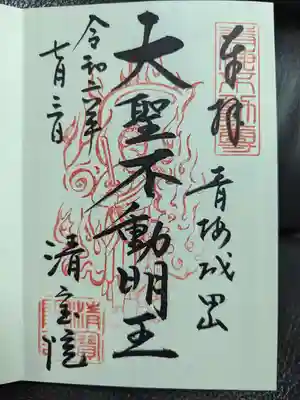 奉拝
青梅成田山
大聖不動明王
令和二年
七月三日
清宝院